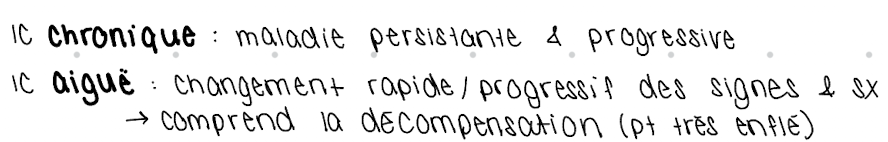 IC chronique : maladie persistante & progressive
IC aiguë : changement rapide/progressif des signes & sx
→ comprend la décompensation (pt très enflé)